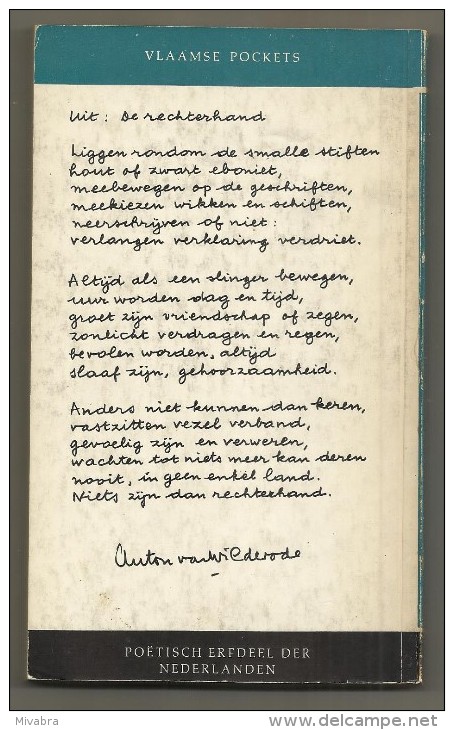 VLAAMSE POCKETS
Uit: De rechterhand
Liggen rondom de smalle stiften
hout of zwart eboniet,
meebewegen op de geschriften,
meekiezen wikken en schiften,
neerschrijven of niet:
verlangen verklaring verdriet.
Altijd als een slinger bewegen,
uur worden dag en tijd,
groet zijn vriendschap of zegen,
zonlicht verdragen en regen,
bevolen worden, altijd
slaaf zijn, gehoorzaamheid.
Anders niet kunnen dan keren,
vastzitten vezel verband,
gevoelig zijn en verweren,
wachten tot niets meer kan deren
nooit, in geen enkel land.
Niets zijn dan rechterhand.
Anton van Wilderode
POËTISCH ERFDEEL DER
NEDERLANDEN
Mivabra
www.delcampe.net